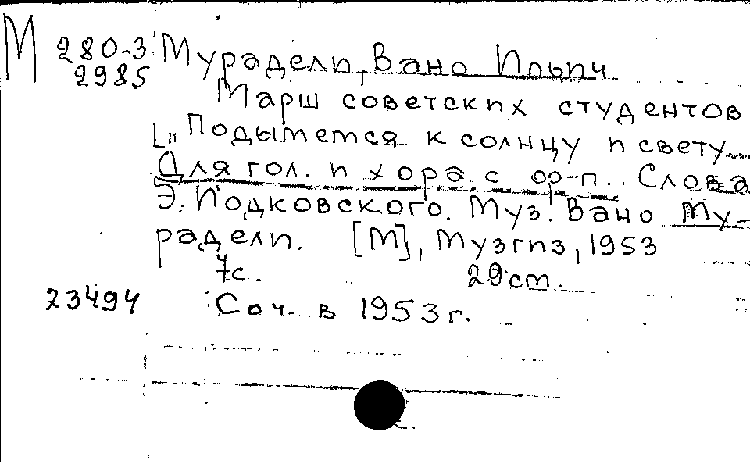 М 280-3 Мурадели, Вано Ильич
2985 Марш советских студентов
[„Подымемся к солнцу и свету...
Для гол. и хора с ф-п. Слова
Э. Иодковского. Муз. Вано Му-
радели. [М], Музгиз, 1953
7с. 29 см.
23494 Соч. в 1953 г.